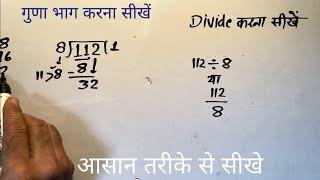 गुणा भाग करना सीखें
Divide करना सीखें
8
16
8)112(1
1
11>8=81
32
112÷8
या
112
8
आसान तरीके से सीखे